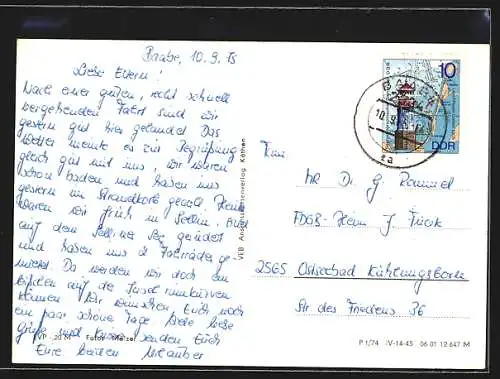 Baabe, 10.9.75
Liebe Eltern!
Nach einer guten, recht schnell
vergehenden Fahrt sind wir
gestern gut hier gelandet. Das
Wetter meinte es zur Begrüßung
gleich gut mit uns, wir waren
schon baden und haben uns
gestern im Strandkorb gesonnt. Heute
waren wir früh in Sellin, sind
auf dem Selliner See gerudert
und haben uns 2 Fahrräder ge-
mietet. Da werden wir doch ein
bißchen auf der Insel rumkurven
können. Wir wünschen Euch noch
ein paar schöne Tage. Viele liebe
Grüße und Küsse senden Euch
Eure beiden Urlauber
VEB Ansichtskartenverlag Köthen
VP -,20 M Fotos:
10
DDR
BAABE
Fam.
MR Dr. G.
FDGB-Heim
2565 Ostseebad Kühlungsborn
Str. des Friedens 36
P 1/74 IV-14-45 06 01 12 647 M